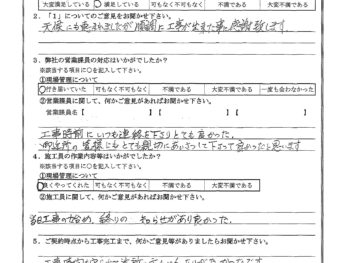 大変満足している ○満足している 可もなく不可もなく 不満である 大変不満である
2．「1」についてのご意見をお聞かせ下さい。
天候にも恵まれましたが順調に工事が出来た事に感謝致します。
3．弊社の営業課員の対応はいかがでしたか?
※該当する項目に○を記入して下さい。
①現場管理について
○行き届いていた 可もなく不可もなく 不満である 大変不満である 一度も会わなかった
②営業課員に関して、何かご意見があればお聞かせ下さい。
営業課員名【 】【 】【 】
工事時前にいつも連絡を下さりとても良かった。
御近所の皆様にもとても親切にあいさつして下さって良かったと思います
4．施工員の作業内容等はいかがでしたか?
※該当する項目に○を記入して下さい。
①現場管理について
○良くやってくれた 可もなく不可もなく 不満である 大変不満である
②施工員に関して、何かご意見があればお聞かせ下さい。
工事の始め、終りの 知らせがあり良かった。
5．ご契約時点から工事完工まで、何かご意見等がありましたらお聞かせ下さい。